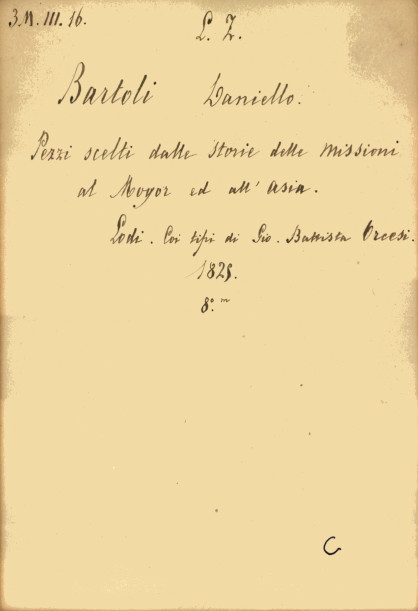 3M. III. 16.
L. Z.
Bartoli Daniello.
Pezzi scelti dalle Storie delle missioni
al Mogor ed all' Asia.
Lodi. Coi tipi di Gio. Battista Orcesi.
1825.
8.° 
C